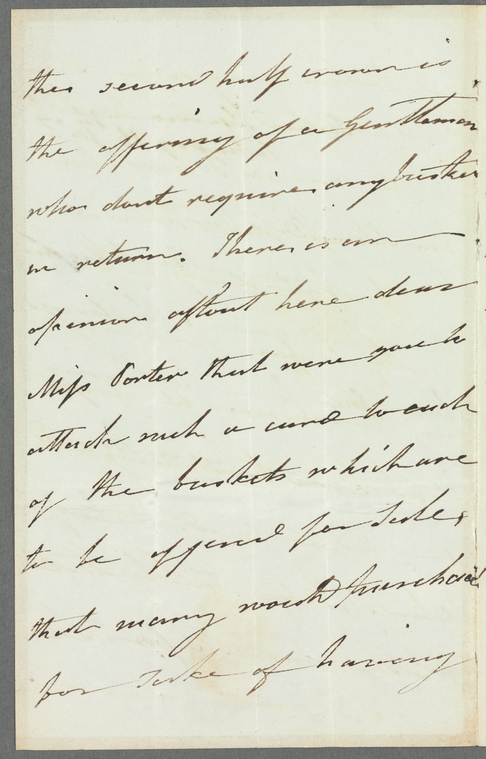 the second half crown is
the offering of a Gentleman
who dont require any basket
in return. There is an
opinion afloat here dear
Miss Porter that were you to
attach such a card to each
of the baskets which are
to be offered for Sale,
that many would purchase
for sake of having